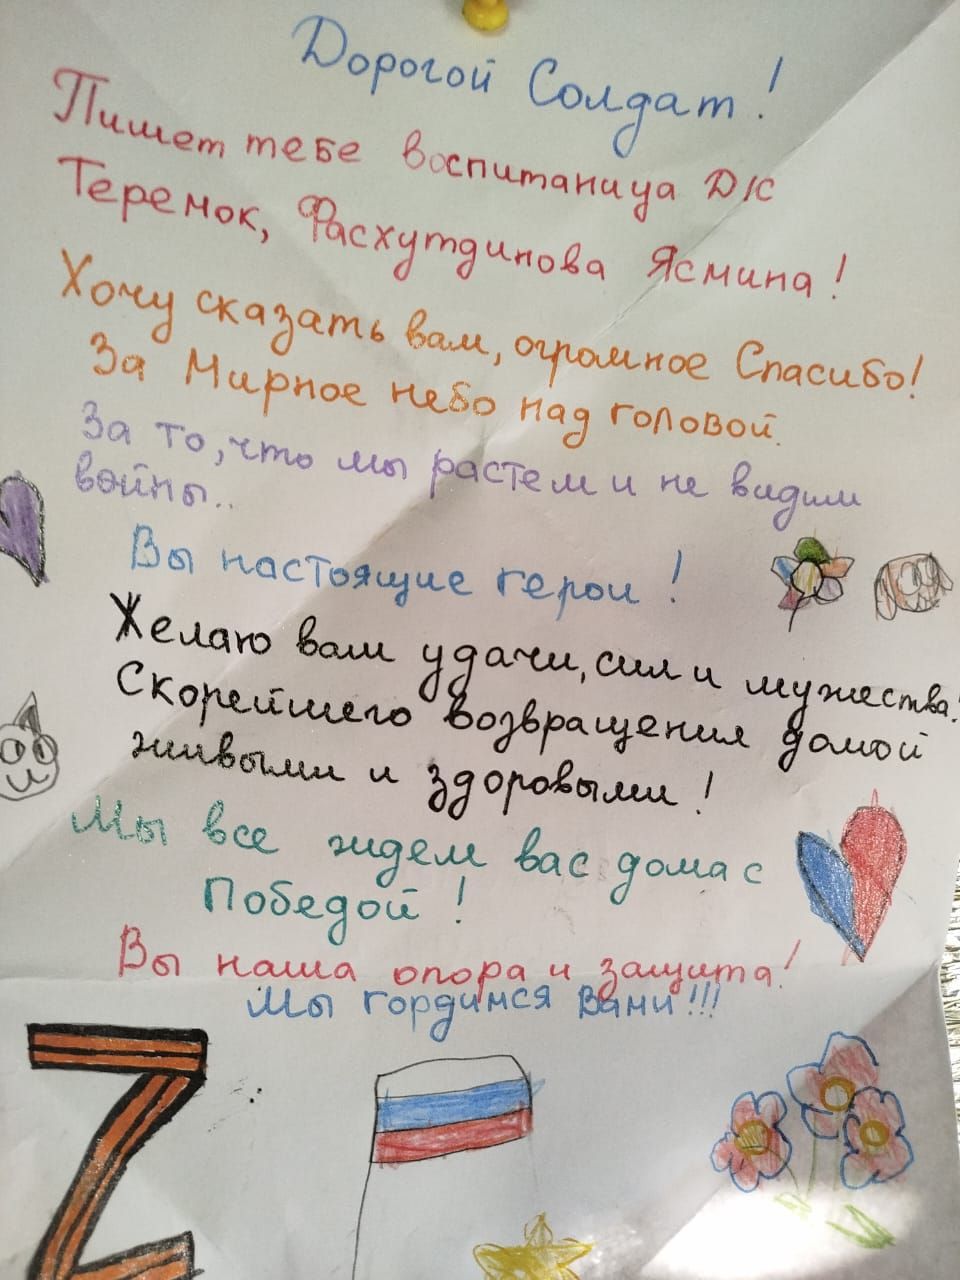 Дорогой Солдат!
Пишет тебе воспитаница Д/с
Теремок, Фасхутдинова Ясмина!
Хочу сказать вам, огромное Спасибо!
За Мирное небо над головой.
За то, что мы растем и не видим
войны..
Вы настоящие герои!
Желаю вам удачи, сил и мужества!
Скорейшего возвращения домой
живыми и здоровыми!
Мы все ждем вас дома с
Победой!
Вы наша опора и защита!
Мы гордимся Вами!!!
Z